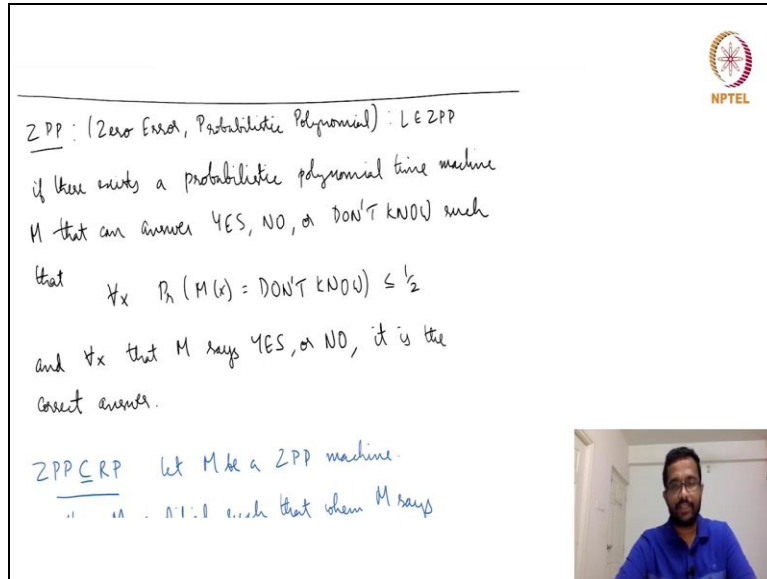 NPTEL
ZPP : (Zero Error, Probabilistic Polynomial) : L ∈ ZPP
if there exists a probabilistic polynomial time machine
M that can answer YES, NO, or DON'T KNOW such
that ∀x Pr (M(x) = DON'T KNOW) ≤ 1/2
and ∀x that M says YES, or NO, it is the
correct answer.
ZPP ⊆ RP Let M be a ZPP machine.
such that when M says